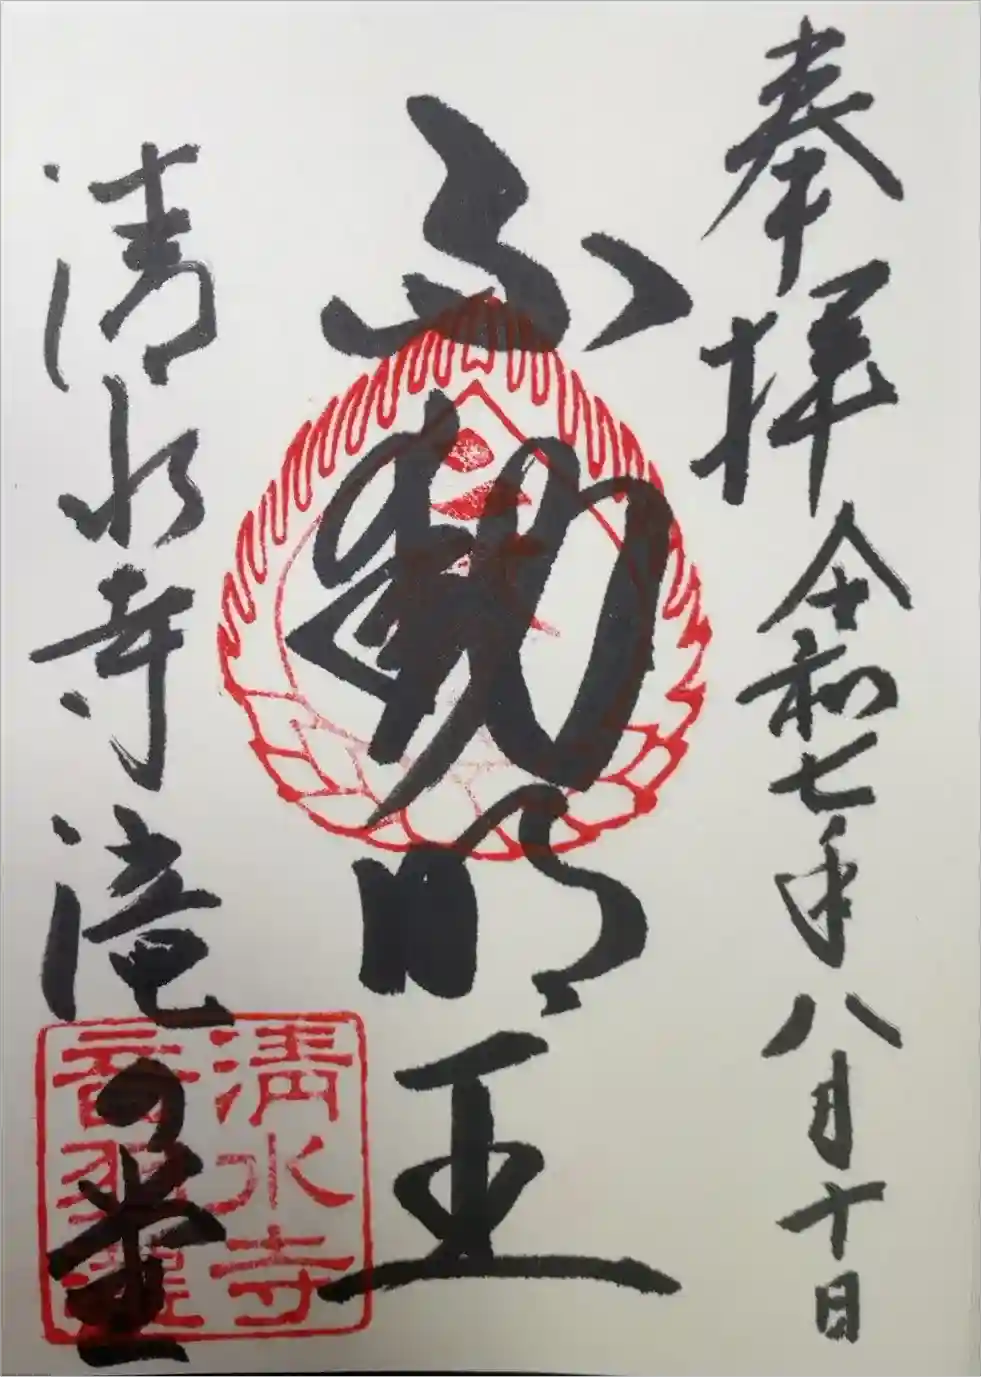 奉拝
令和七年八月十日
不動明王
清水寺滝の堂
清水寺
音羽滝